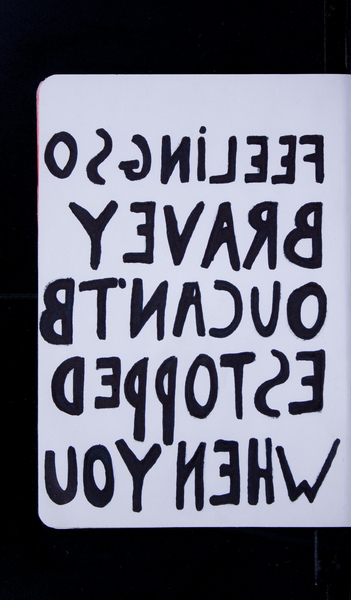 FEELiNG SO
BRAVE Y
OU CAN'T B
E STOPPED
WHEN YOU